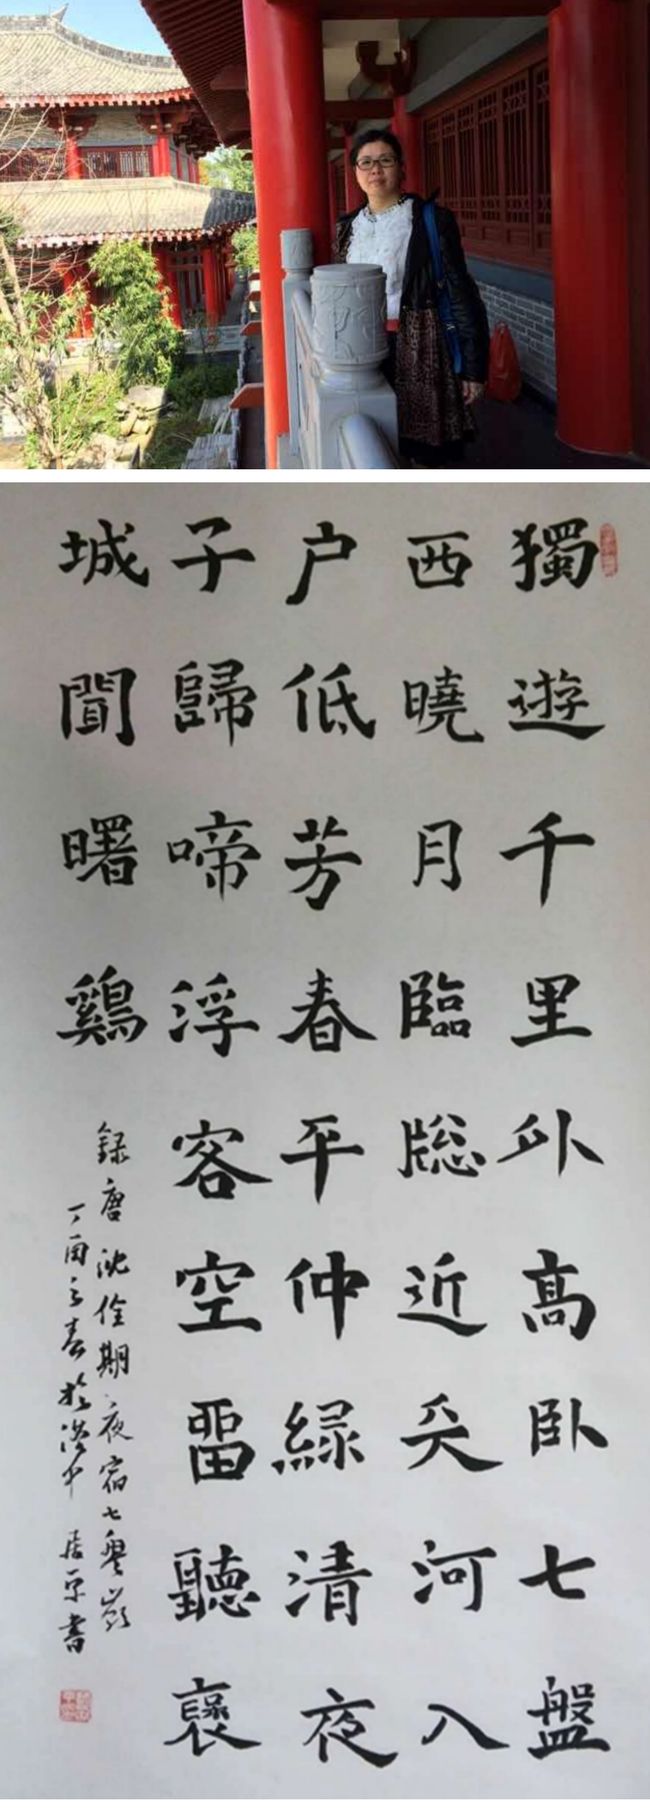 獨遊千里外高卧七盤
西曉月臨牕近天河入
户低芳春平仲緑清夜
子歸啼浮客空畱聽褒
城聞曙鷄
録唐沈佺期夜宿七盤嶺
丁酉之春於洛中 居平書